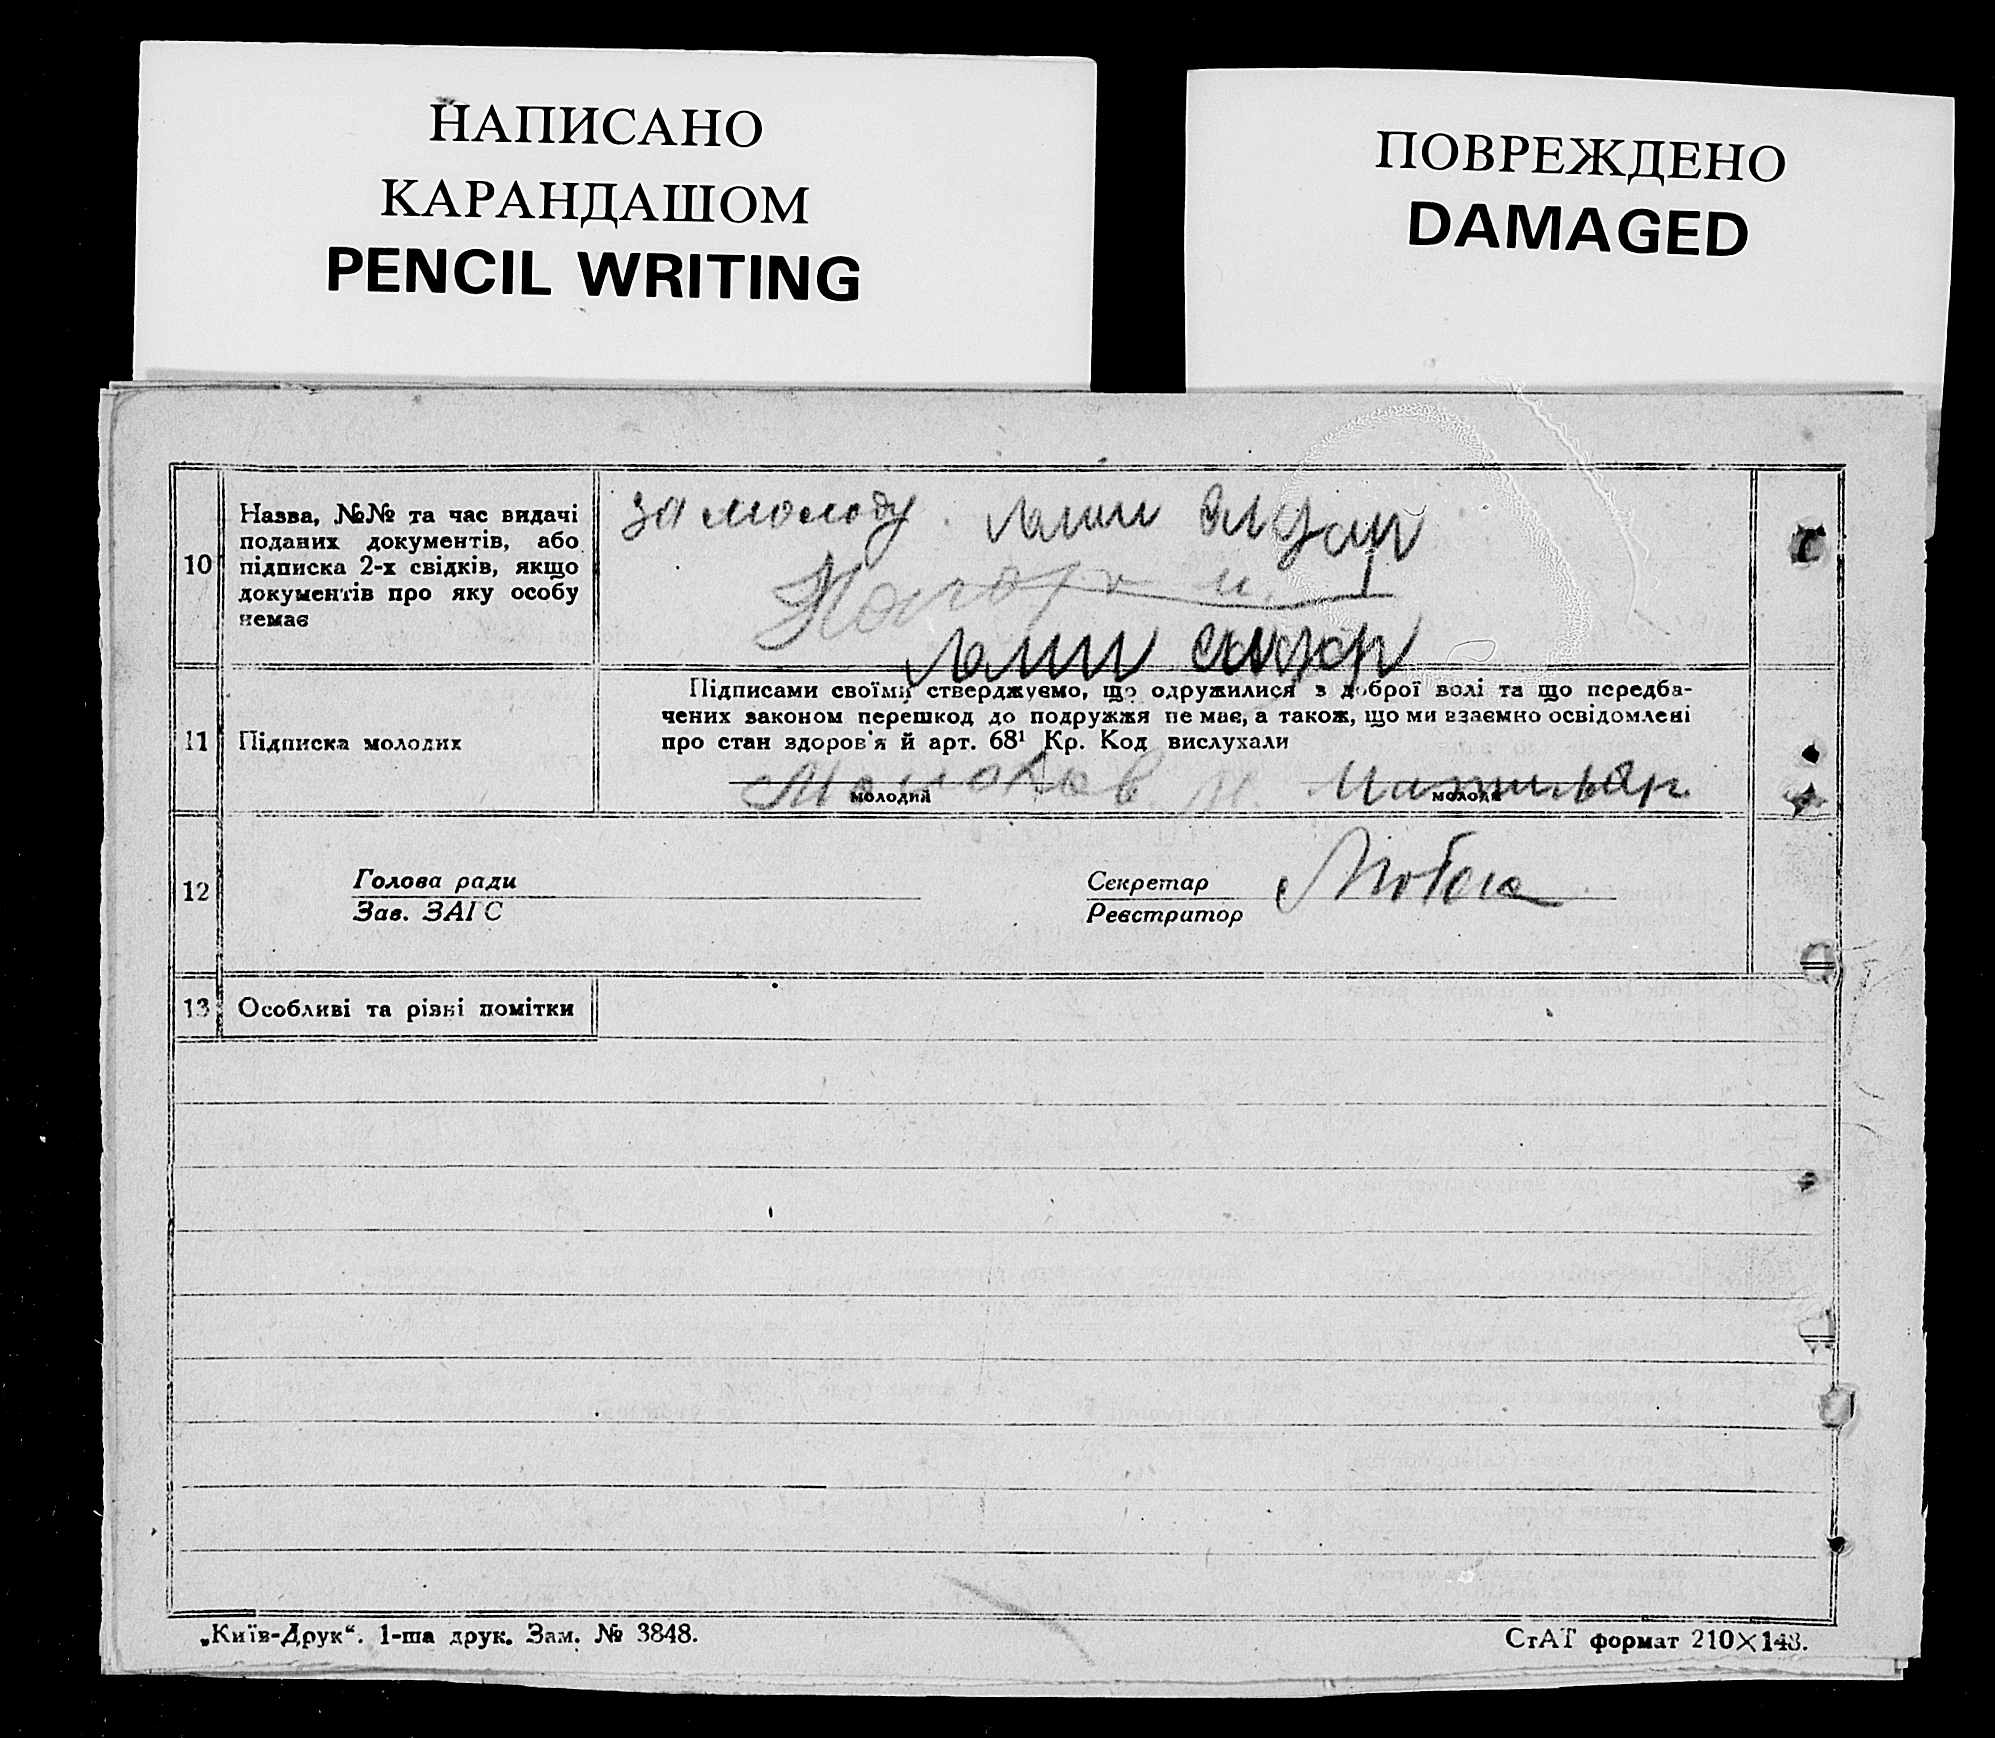 НАПИСАНО
КАРАНДАШОМ
PENCIL WRITING
ПОВРЕЖДЕНО
DAMAGED
10
Назва, №№ та час видачі
поданих документів, або
підписка 2-х свідків, якщо
документів про яку особу
немає
за молоду
11
Підписка молодих
Підписами своїми стверджуємо, що одружилися з доброї волі та що передба-
чених законом перешкод до подружжя не має, а також, що ми взаємно освідомлені
про стан здоров'я й арт. 68¹ Кр. Код вислухали
молодий
молода
12
Голова ради
Зав. ЗАГС
Секретар
Реєстратор
13
Особливі та різні помітки
„Київ-Друк“. 1-ша друк. Зам. № 3848.
СтАТ формат 210×148.